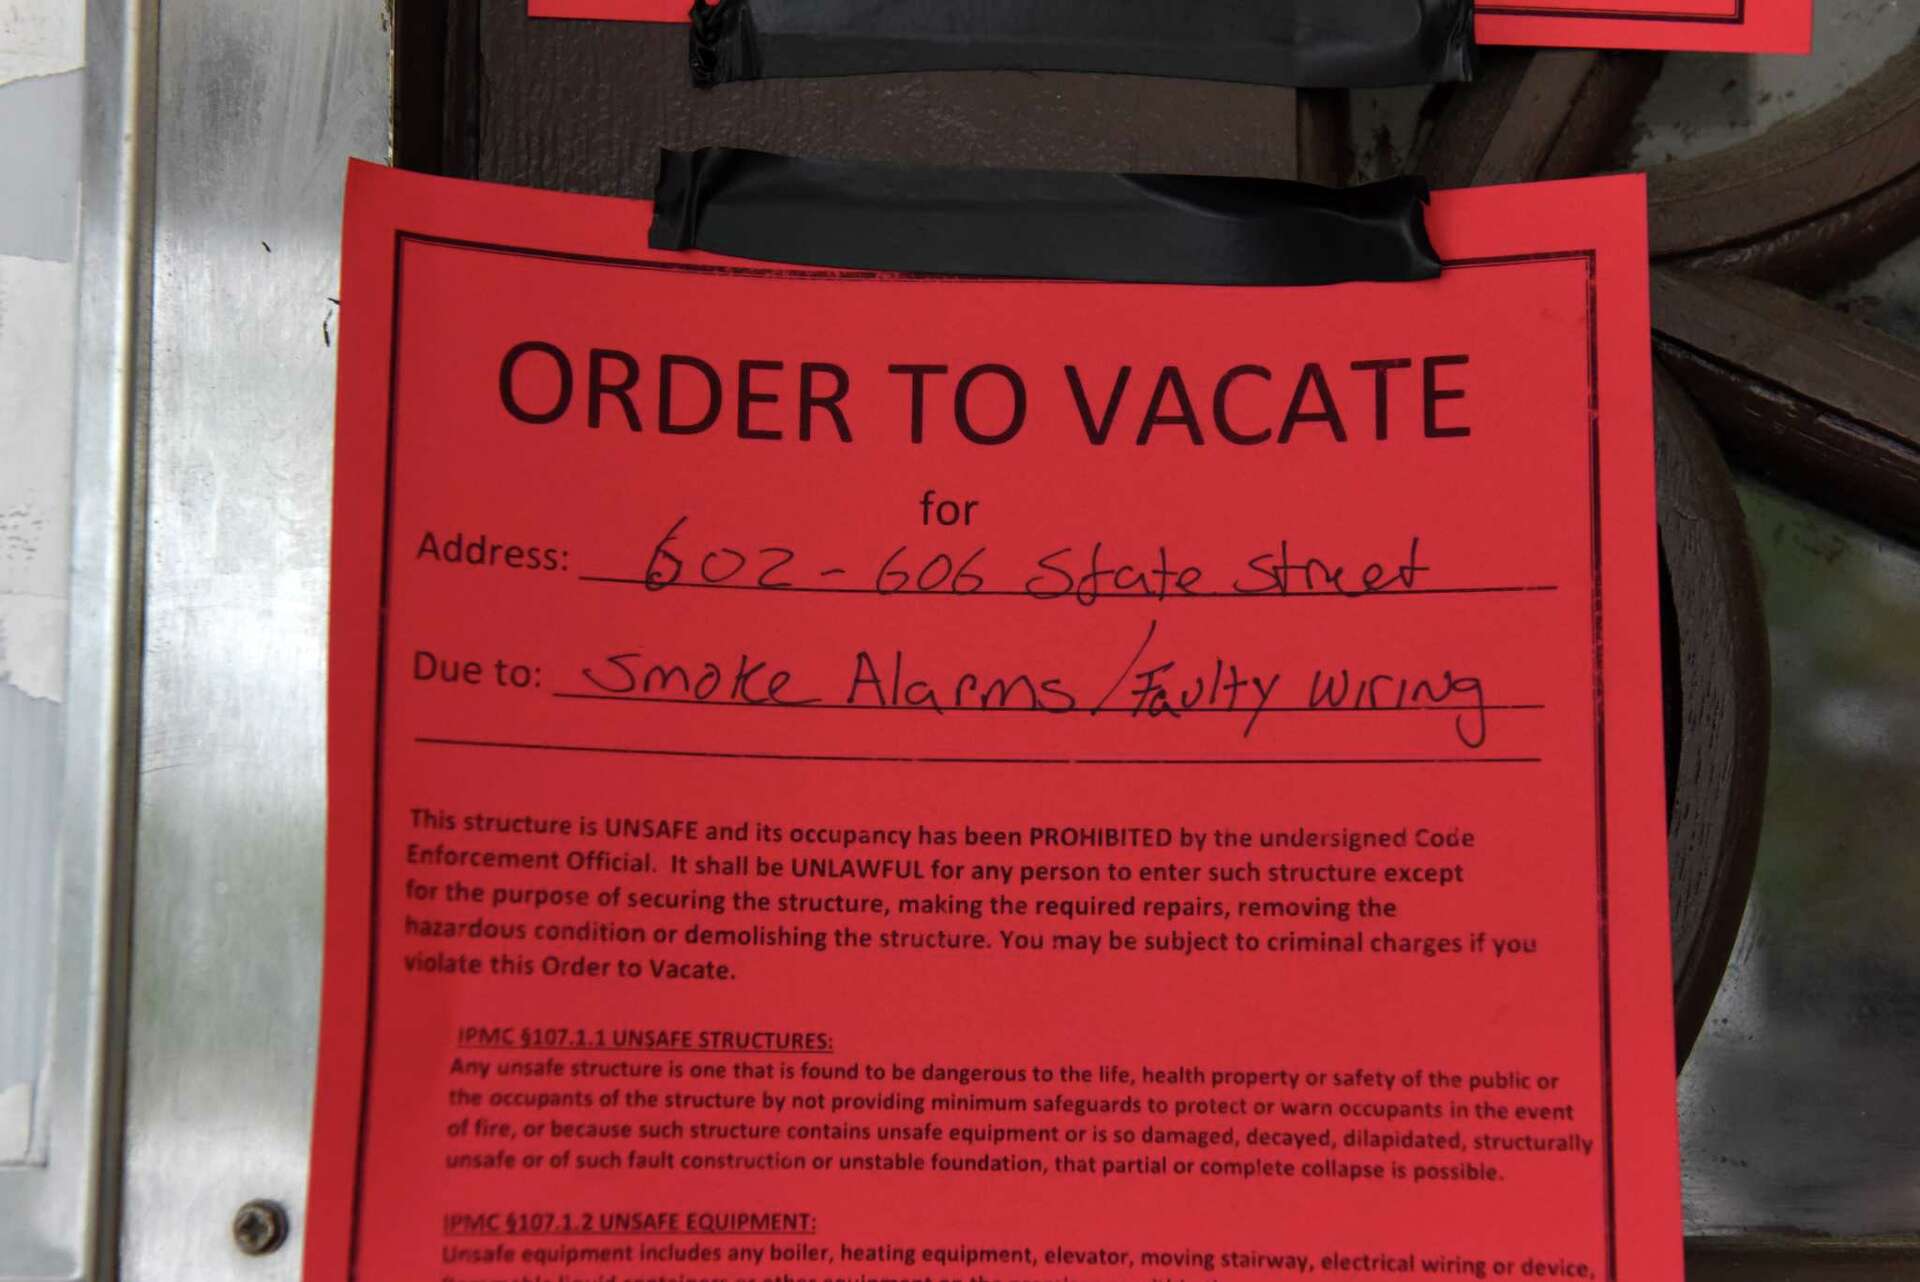 ORDER TO VACATE
for
Address: 602 - 606 State Street
Due to: Smoke Alarms / Faulty Wiring
This structure is UNSAFE and its occupancy has been PROHIBITED by the undersigned Code
Enforcement Official. It shall be UNLAWFUL for any person to enter such structure except
for the purpose of securing the structure, making the required repairs, removing the
hazardous condition or demolishing the structure. You may be subject to criminal charges if you
violate this Order to Vacate.
IPMC §107.1.1 UNSAFE STRUCTURES:
Any unsafe structure is one that is found to be dangerous to the life, health property or safety of the public or
the occupants of the structure by not providing minimum safeguards to protect or warn occupants in the event
of fire, or because such structure contains unsafe equipment or is so damaged, decayed, dilapidated, structurally
unsafe or of such fault construction or unstable foundation, that partial or complete collapse is possible.
IPMC §107.1.2 UNSAFE EQUIPMENT:
Unsafe equipment includes any boiler, heating equipment, elevator, moving stairway, electrical wiring or device,